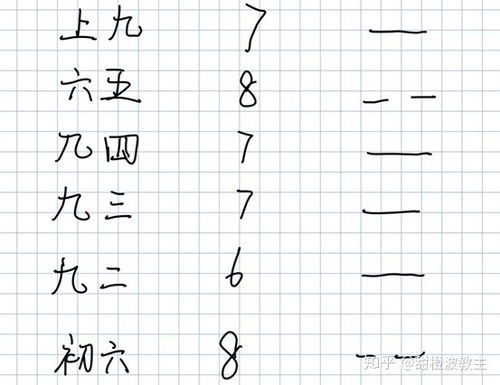 上九 7
六五 8
九四 7
九三 7
九二 6
初六 8
知乎 @甜橙波教主